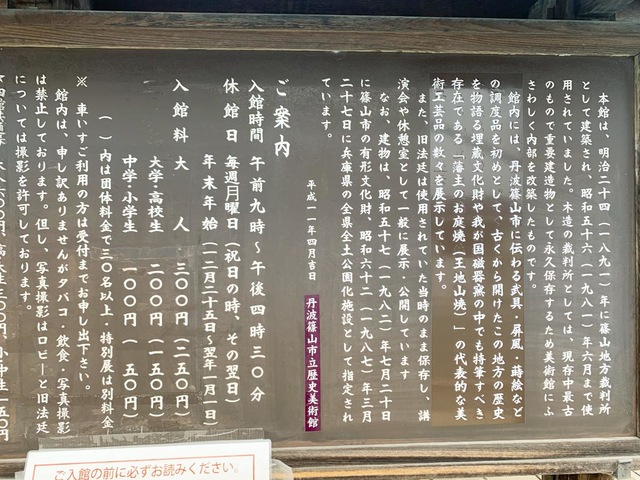 本館は、明治二十四(一八九一)年に篠山地方裁判所
として建築され、昭和五十六(一九八一)年六月まで使
用されていました。木造の裁判所としては、現存中最古
のもので重要建造物として永久保存するため美術館にふ
さわしく内部を改築したものです。
館内には、丹波篠山市に伝わる武具・屏風・蒔絵など
の調度品を初めとして、古くから開けたこの地方の歴史
を物語る埋蔵文化財や我が国磁器窯の中でも特筆すべき
存在である「藩主のお庭焼」(王地山焼)」の代表的な美
術工芸品の数々を展示しています。
また、旧法廷は使用されていた当時のまま保存し、講
演会や休憩室として一般に展示・公開しています
なお、建物は、昭和五十七(一九八二)年七月二十日
に篠山市の有形文化財、昭和六十二(一九八七)年三月
二十七日に兵庫県の全県全土公園化施設として指定され
ています。
平成一一年四月吉日
丹波篠山市立歴史美術館
ご案内
入館時間 午前九時〜午後四時三〇分
休館日 毎週月曜日(祝日の時、その翌日)
年末年始(一二月二十五日〜翌年一月一日)
入館料 大人 三〇〇円(二五〇円)
大学・高校生 二〇〇円(一五〇円)
中学・小学生 一〇〇円(五〇円)
( )内は団体料金で三〇名以上・特別展は別料金
※ 車いすご利用の方は受付までお申し出下さい。
館内は、申し訳ありませんがタバコ・飲食・写真撮影
は禁止しております。但し、写真撮影はロビーと旧法廷
については撮影を許可しております。
ご入館の前に必ずお読みください。